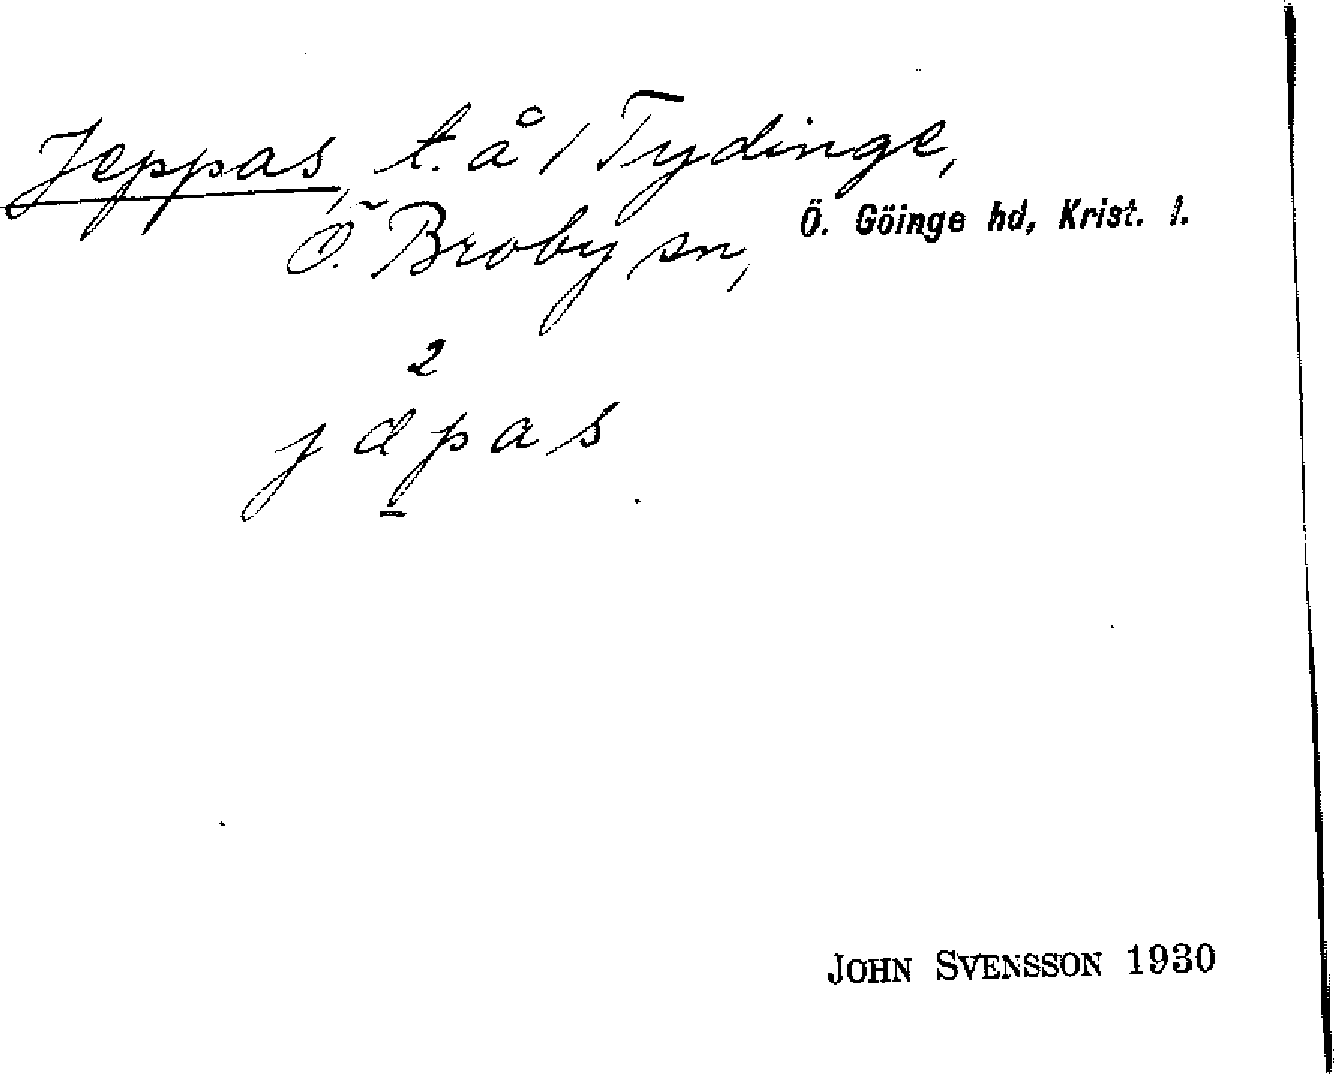 Jeppas, t. å / Tydinge,
Ö. Broby sn, Ö. Göinge hd, Krist. l.
2
jäpas
JOHN SVENSSON 1930